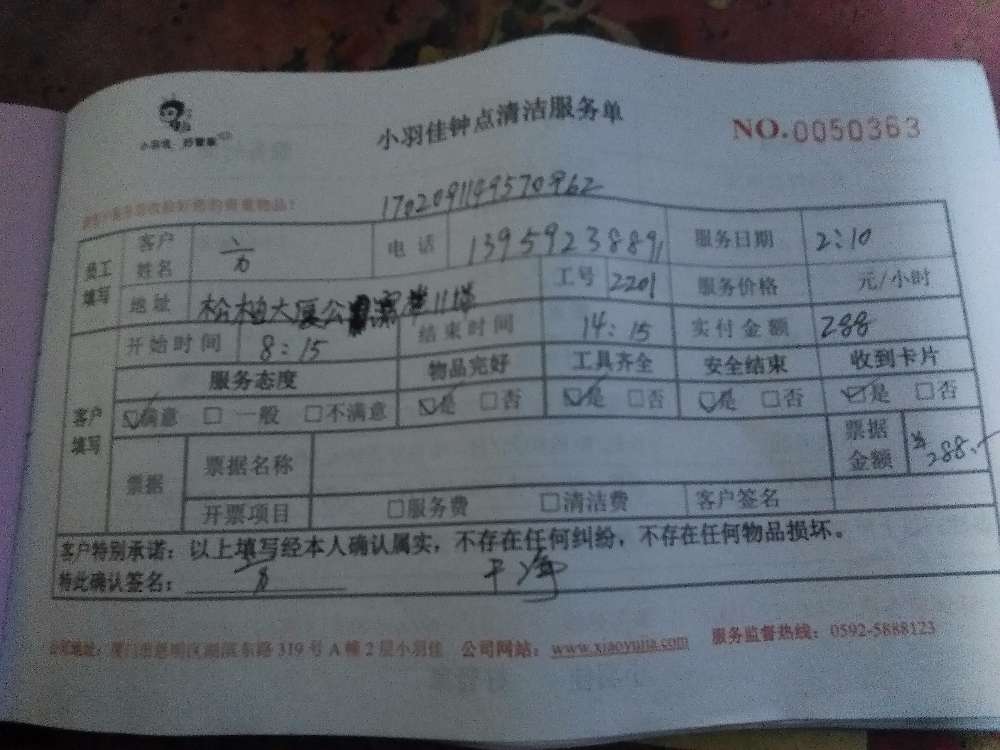 小羽佳 好管家
小羽佳钟点清洁服务单
NO.0050363
1702091149570962
员工填写
客户姓名 方 电话 13959238891 服务日期 2:10
地址 松柏大厦公 11楼 工号 2201 服务价格 元/小时
客户填写
开始时间 8:15 结束时间 14:15 实付金额 288
服务态度 物品完好 工具齐全 安全结束 收到卡片
☑满意 □一般 □不满意 ☑是 □否 ☑是 □否 ☑是 □否 ☑是 □否
票据 票据名称 票据金额 ¥288.-
开票项目 □服务费 □清洁费 客户签名
客户特别承诺:以上填写经本人确认属实,不存在任何纠纷,不存在任何物品损坏。
特此确认签名: 方
公司地址:厦门市思明区湖滨东路319号A幢2层小羽佳 公司网站:www.xiaoyujia.com 服务监督热线:0592-5888123